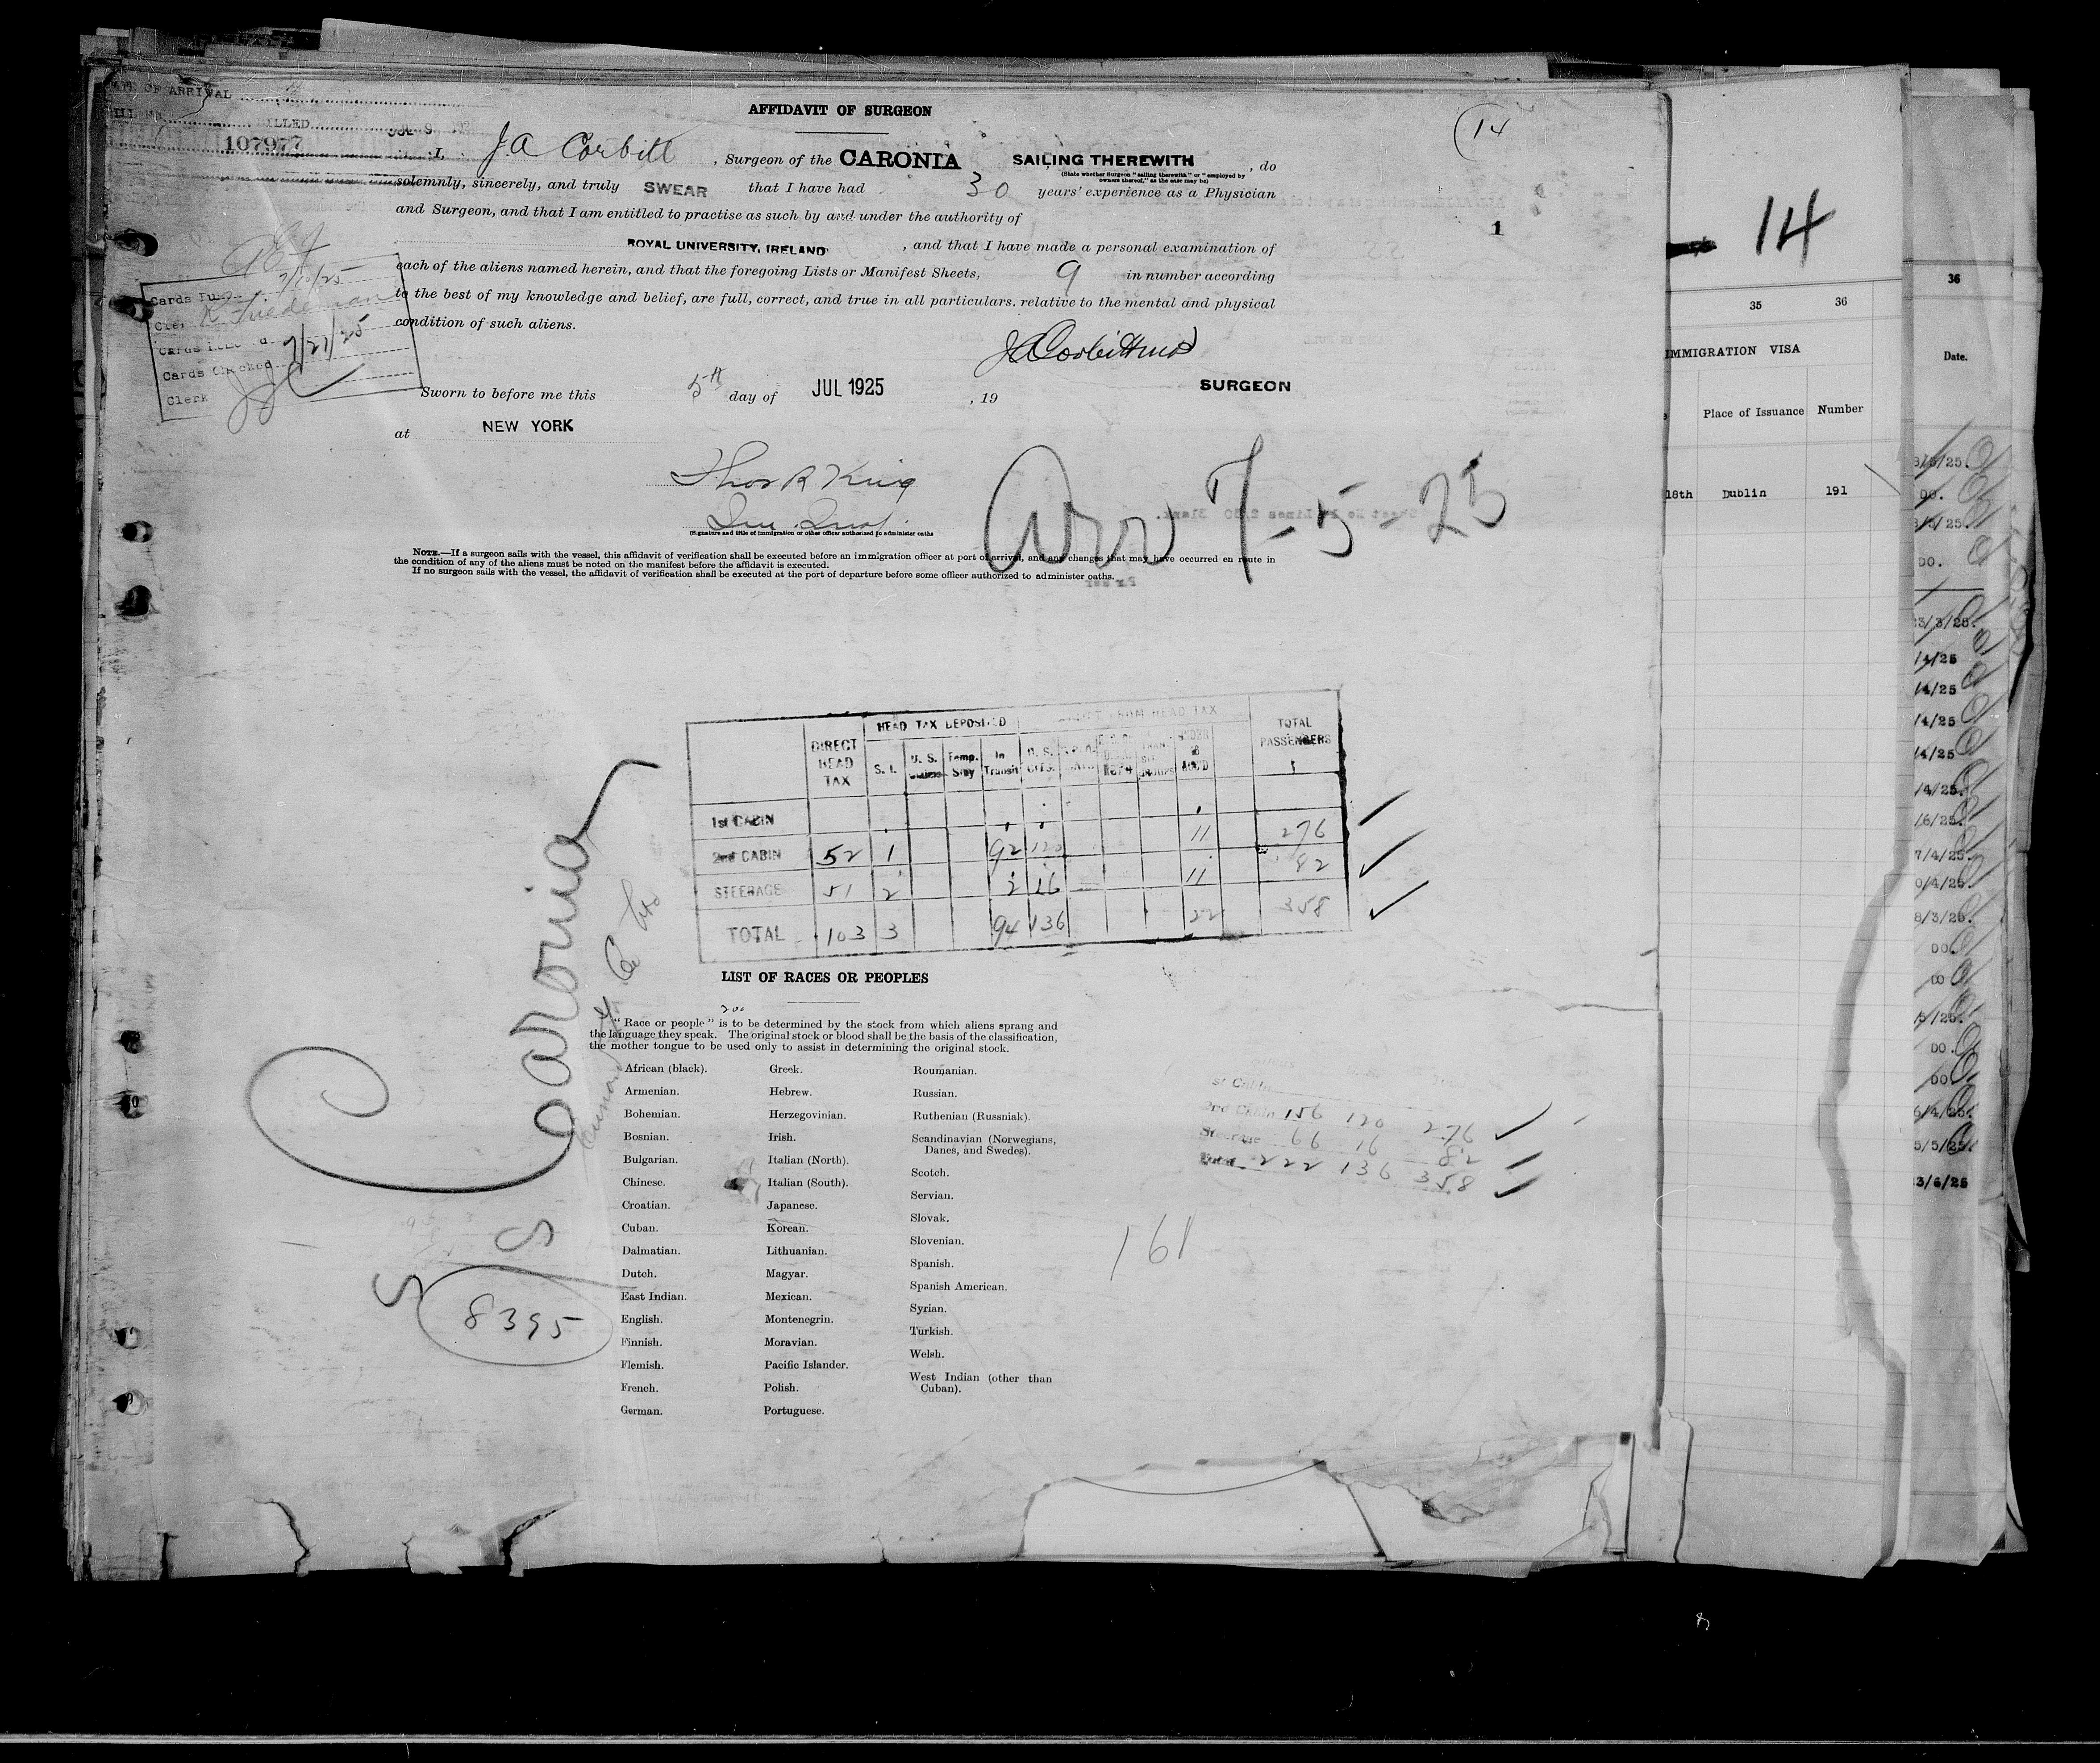 AFFIDAVIT OF SURGEON
14
DATE OF ARRIVAL
BILLED JUL 9 192
107977
I, J.A Corbitt, Surgeon of the CARONIA SAILING THEREWITH, do
(State whether Surgeon "sailing therewith" or "employed by
owners thereof," as the case may be)
solemnly, sincerely, and truly SWEAR that I have had 30 years' experience as a Physician
and Surgeon, and that I am entitled to practise as such by and under the authority of
1
ROYAL UNIVERSITY, IRELAND, and that I have made a personal examination of
each of the aliens named herein, and that the foregoing Lists or Manifest Sheets, 9 in number according
to the best of my knowledge and belief, are full, correct, and true in all particulars, relative to the mental and physical
condition of such aliens.
7/10/25
Cards Pun
K Friedeman
Cards
7/21/25
Cards Checked
Clerk
J A Corbitt
SURGEON
Sworn to before me this 5th day of JUL 1925, 19
at NEW YORK
Thos R King
(Signature and title of immigration or other officer authorized to administer oaths
Arr 7-5-25
NOTE.—If a surgeon sails with the vessel, this affidavit of verification shall be executed before an immigration officer at port of arrival, and any changes that may have occurred en route in
the condition of any of the aliens must be noted on the manifest before the affidavit is executed.
If no surgeon sails with the vessel, the affidavit of verification shall be executed at the port of departure before some officer authorized to administer oaths.
HEAD TAX DEPOSITED FROM HEAD TAX
DIRECT HEAD TAX S. I. U. S. Temp. Stay In Transit U. S. UNDER 16 ACC'D TOTAL PASSENGERS
1st CABIN
2nd CABIN 52 1 92 120 11 276
STEERAGE 51 2 2 16 11 82
TOTAL 103 3 94 136 22 358
S S Caronia
8395
LIST OF RACES OR PEOPLES
200
"Race or people" is to be determined by the stock from which aliens sprang and
the language they speak. The original stock or blood shall be the basis of the classification,
the mother tongue to be used only to assist in determining the original stock.
African (black).
Armenian.
Bohemian.
Bosnian.
Bulgarian.
Chinese.
Croatian.
Cuban.
Dalmatian.
Dutch.
East Indian.
English.
Finnish.
Flemish.
French.
German.
Greek.
Hebrew.
Herzegovinian.
Irish.
Italian (North).
Italian (South).
Japanese.
Korean.
Lithuanian.
Magyar.
Mexican.
Montenegrin.
Moravian.
Pacific Islander.
Polish.
Portuguese.
Roumanian.
Russian.
Ruthenian (Russniak).
Scandinavian (Norwegians,
Danes, and Swedes).
Scotch.
Servian.
Slovak.
Slovenian.
Spanish.
Spanish American.
Syrian.
Turkish.
Welsh.
West Indian (other than
Cuban).
st Cabin
2nd Cabin 156 120 276
Steerage 66 16 82
Total 222 136 358
161
14
35 36
IMMIGRATION VISA
Place of Issuance Number
18th Dublin 191
36
Date.
DO.
DO.
/4/25
/4/25
/4/25
/4/25
/4/25
/6/25
7/4/25
0/4/25
8/3/25
DO
DO
DO.
DO
6/4/25
5/5/25
3/6/25